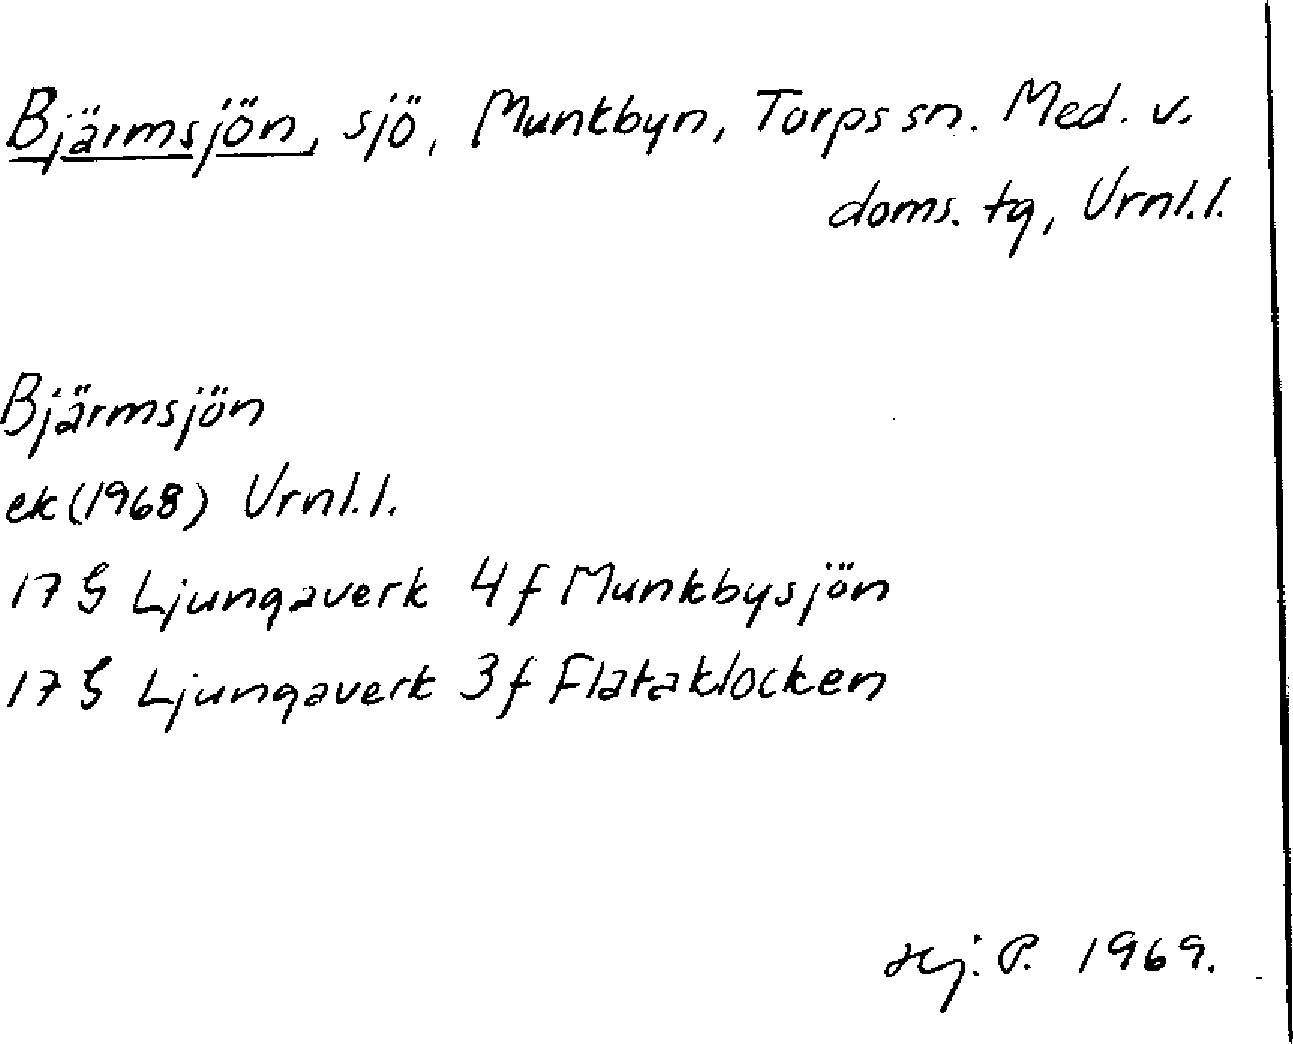 Bjärmsjön, sjö, Munkbyn, Torps sn. Med. v.
doms. tg, Vrnl.l.
Bjärmsjön
ek (1968) Vrnl.l.
17 G Ljungaverk 4 f Munkbysjön
17 G Ljungaverk 3 f Flataklocken
Hj. P. 1969.